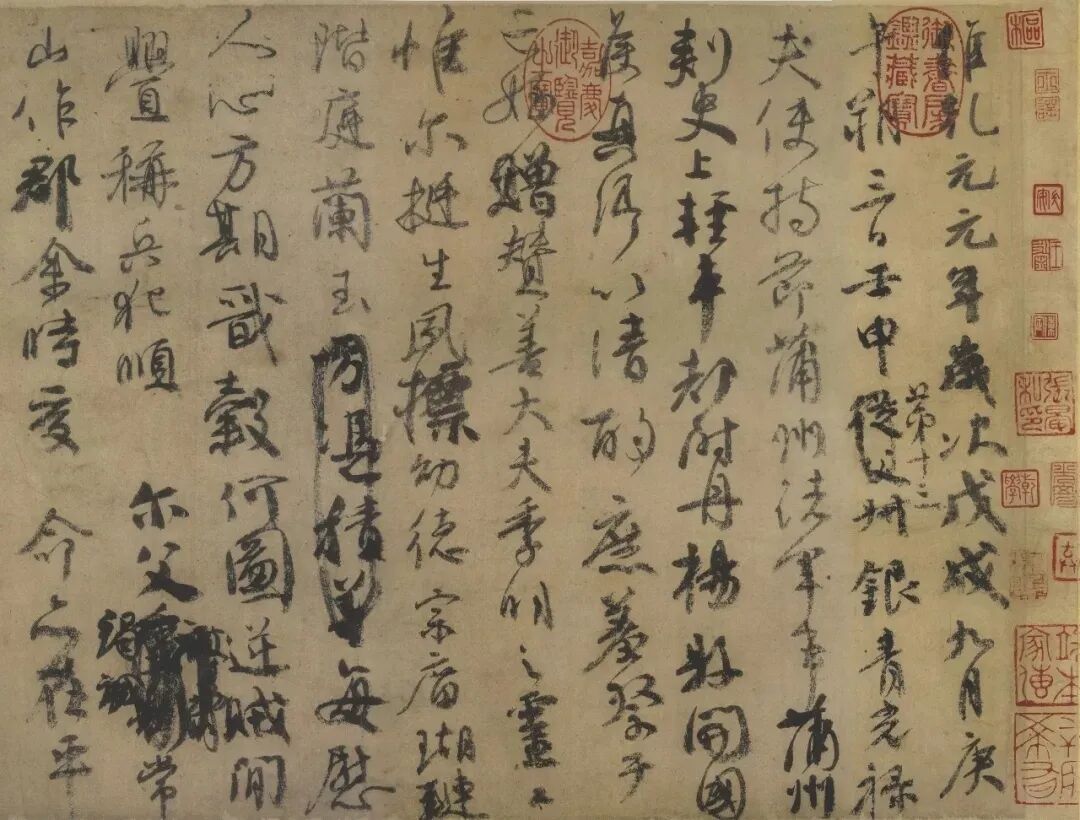 維乾元元年歲次戊戌九月庚
午朔三日壬申第十三從父叔銀青光祿
夫使持節蒲州諸軍事蒲州
刺史上輕車都尉丹楊縣開國
侯真卿以清酌庶羞祭于
亡姪贈贊善大夫季明之靈曰
惟尔挺生夙標幼德宗廟瑚璉
階庭蘭玉方憑積善每慰
人心方期戩穀何圖逆賊閒
舋稱兵犯順尔父竭誠常
山作郡余時受命亦在平
御書房鑑藏寶
嘉慶御覽之寶